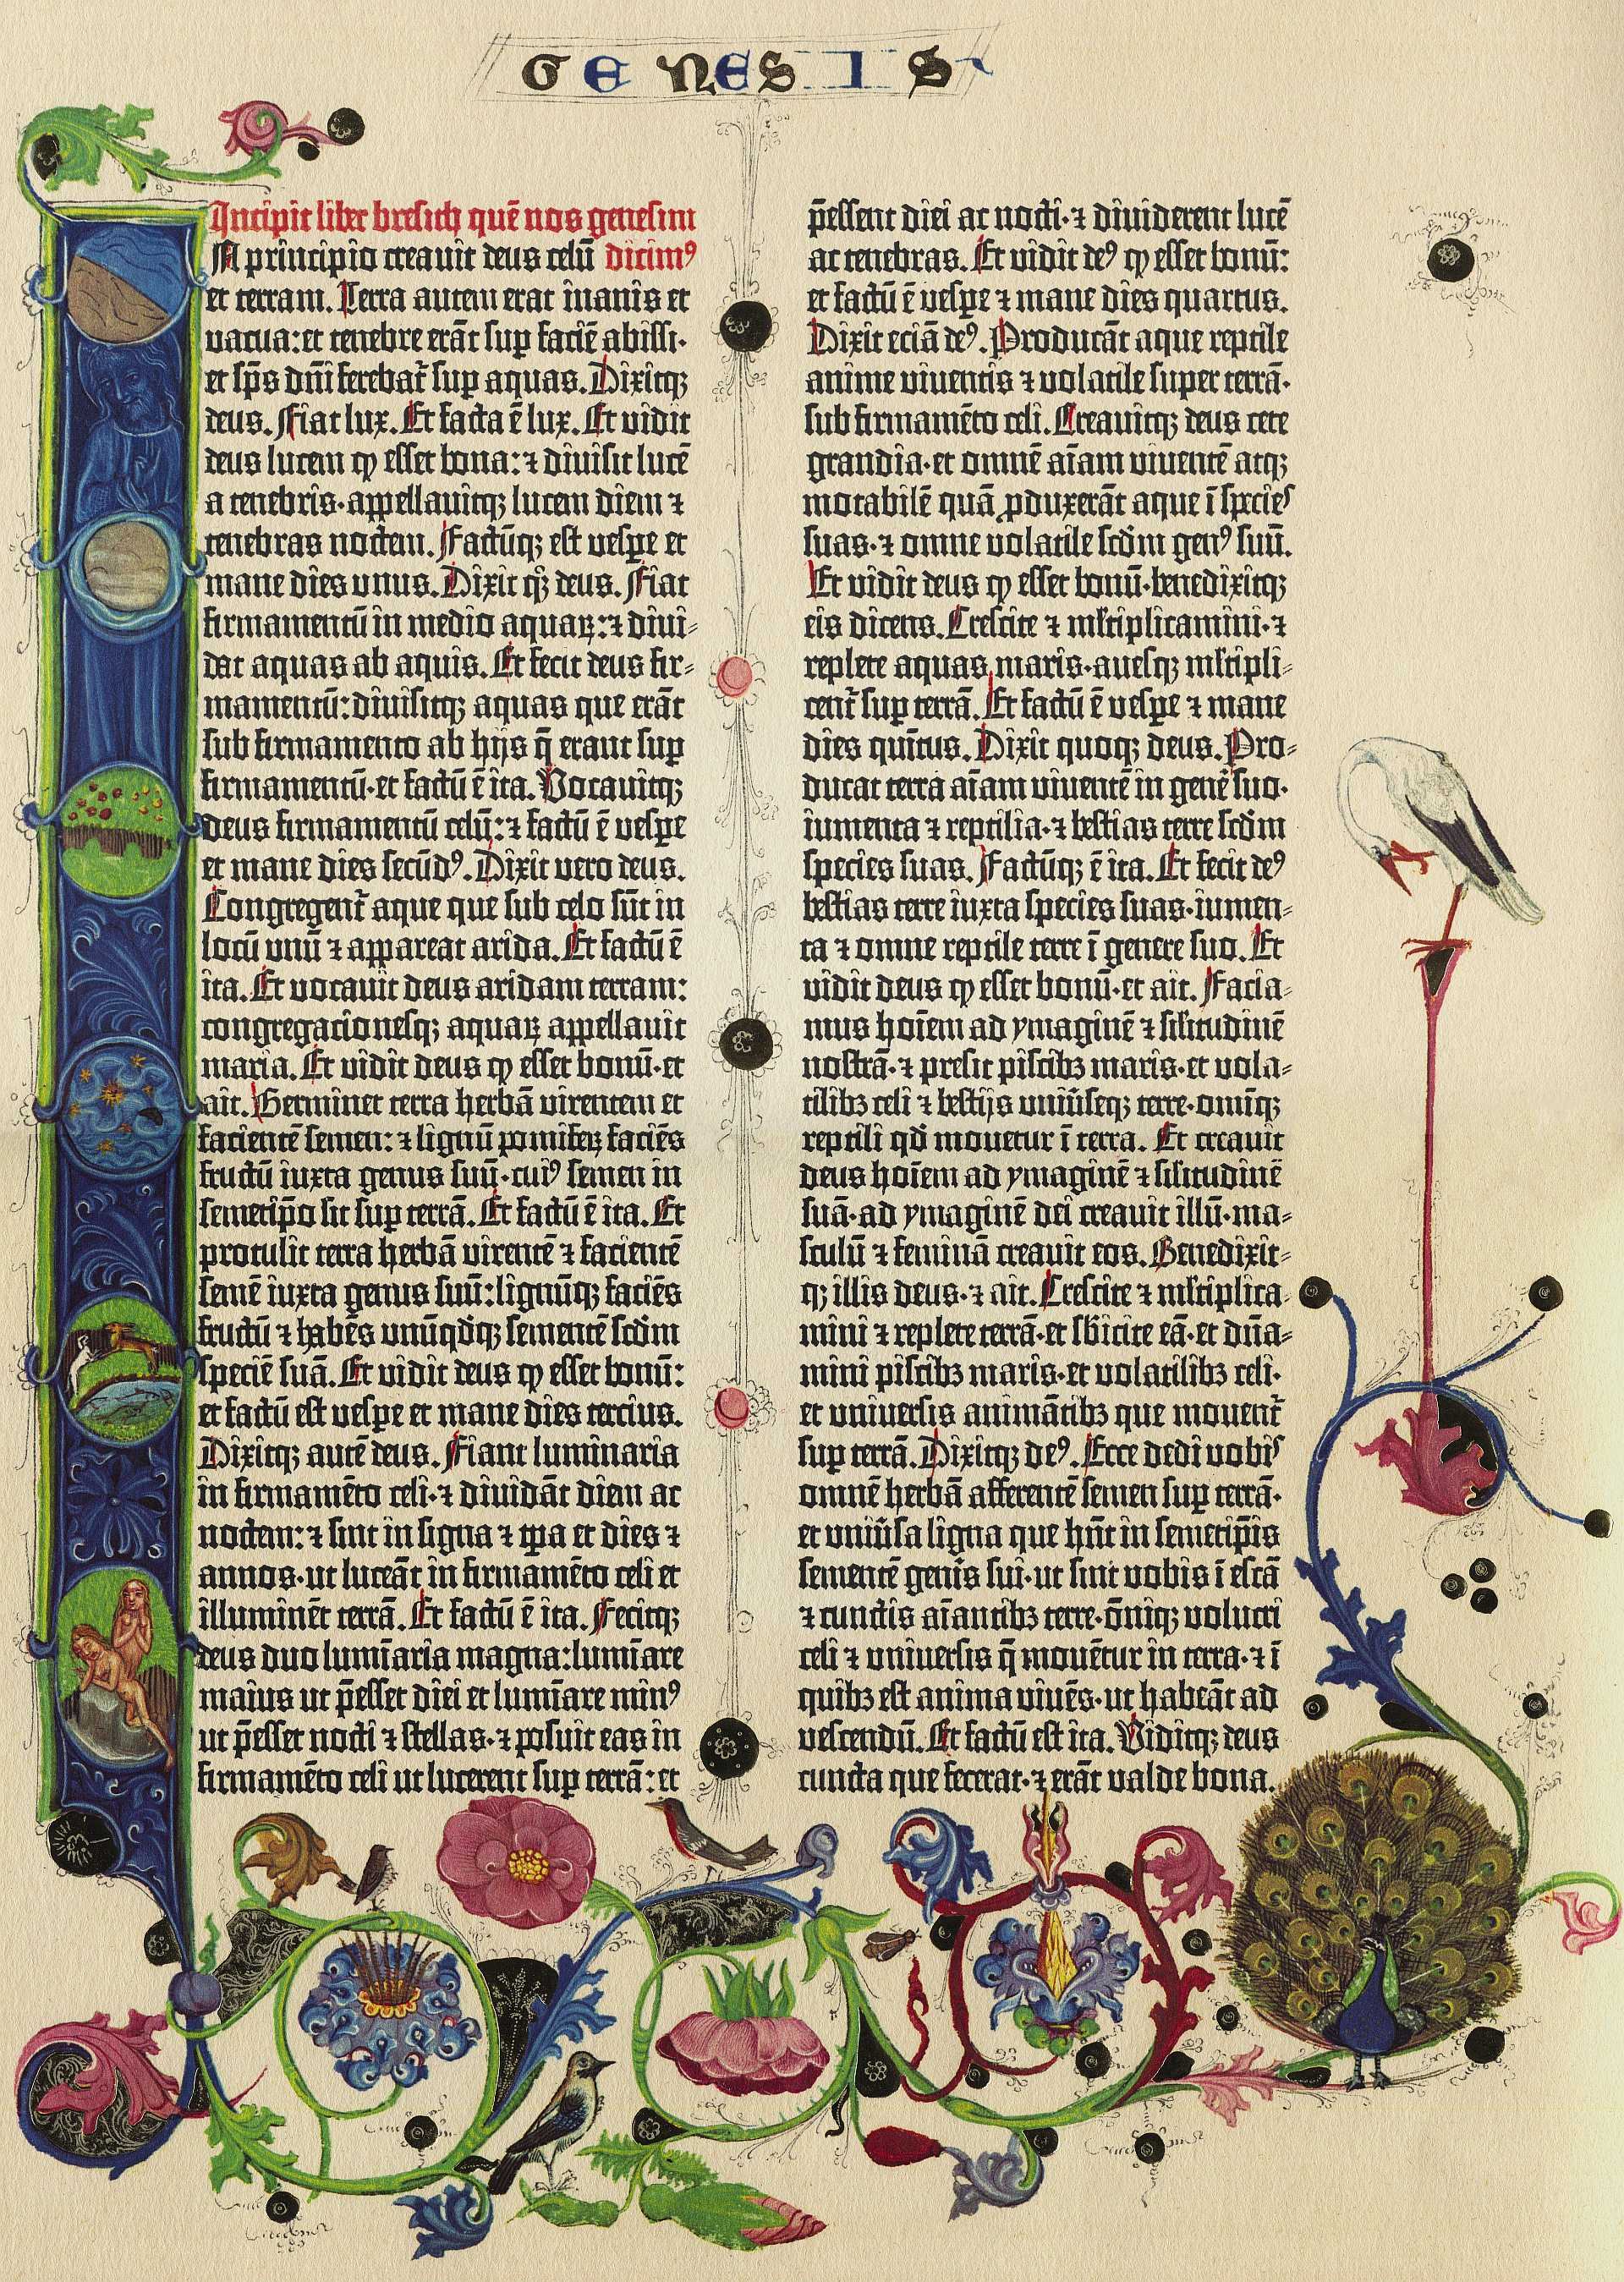 GENESIS
Incipit liber bresich quē nos genesim
N principio creavit deus celū dicimꝰ
et terram. Terra autem erat inanis et
vacua: et tenebre erāt sup faciē abissi.
et sp̄s dn̄i ferebat᷑ sup aquas. Dixitqꝫ
deus. Fiat lux. Et facta ē lux. Et vidit
deus lucem ꝙ esset bona: ⁊ divisit lucē
a tenebris. appellavitqꝫ lucem diem ⁊
tenebras noctem. Factūqꝫ est vespe et
mane dies unus. Dixit qꝫ deus. Fiat
firmamentū in medio aquaꝝ: ⁊ divi-
dat aquas ab aquis. Et fecit deus fir-
mamentū: divisitqꝫ aquas que erāt
sub firmamento ab hijs q̄ erant sup
firmamentū. et factū ē ita. Vocavitqꝫ
deus firmamentū celū: ⁊ factū ē vespe
et mane dies secūdꝰ. Dixit vero deus.
Congregent᷑ aque que sub celo sūt in
locū unū ⁊ appareat arida. Et factū ē
ita. Et vocavit deus aridam terram:
congregacionesqꝫ aquaꝝ appellavit
maria. Et vidit deus ꝙ esset bonū. et
ait. Germinet terra herbā virentem et
facientē semen: ⁊ lignū pomifeꝝ faciēs
fructū iuxta genus suū. cuiꝰ semen in
semetip̄o sit sup terrā. Et factū ē ita. Et
protulit terra herbā virentē ⁊ facientē
semē iuxta genus suū: lignūqꝫ faciēs
fructū ⁊ habēs unūqdqꝫ sementē scd̄m
speciē suā. Et vidit deus ꝙ esset bonū:
et factū est vespe et mane dies tercius.
Dixitqꝫ autē deus. Fiant luminaria
in firmamēto celi. ⁊ dividāt diem ac
noctem: ⁊ sint in signa ⁊ tp̄a et dies ⁊
annos. ut luceāt in firmamēto celi et
illuminēt terrā. Et factū ē ita. Fecitqꝫ
deus duo lumīaria magna: lumīare
maius ut p̄esset diei et lumīare minꝰ
ut p̄esset nocti ⁊ stellas. ⁊ posuit eas in
firmamēto celi ut lucerent sup terrā: et
p̄essent diei ac nocti. ⁊ dividerent lucē
ac tenebras. Et vidit deꝰ ꝙ esset bonū:
et factū ē vespe ⁊ mane dies quartus.
Dixit eciā deꝰ. Producāt aque reptile
anime viventis ⁊ volatile super terrā.
sub firmamēto celi. Creavitqꝫ deus cete
grandia. et omnē aīam viventē atqꝫ
motabilē quā ꝓduxerāt aque ī species
suas. ⁊ omne volatile scd̄m genꝰ suū.
Et vidit deus ꝙ esset bonū. benedixitqꝫ
eis dicens. Crescite ⁊ mĺtiplicamini. ⁊
replete aquas maris. avesqꝫ mĺtipli-
cent᷑ sup terrā. Et factū ē vespe ⁊ mane
dies quītus. Dixit quoqꝫ deus. Pro-
ducat terra aīam viventē in gene᷑ suo.
iumenta ⁊ reptilia. ⁊ bestias terre scd̄m
species suas. Factūqꝫ ē ita. Et fecit deꝰ
bestias terre iuxta species suas. iumen-
ta ⁊ omne reptile terre ī genere suo. Et
vidit deus ꝙ esset bonū. et ait. Facia-
mus hoīem ad ymaginē ⁊ sĺitudinē
nostrā. ⁊ presit piscibꝫ maris. et vola-
tilibꝫ celi ⁊ bestijs univ̄seqꝫ terre. omīqꝫ
reptili qd̄ movetur ī terra. Et creavit
deus hoīem ad ymaginē ⁊ sĺitudinē
suā. ad ymaginē dei creavit illū. ma-
sculū ⁊ feminā creavit eos. Benedixit-
qꝫ illis deus. ⁊ ait. Crescite ⁊ mĺtiplica-
mini ⁊ replete terrā. et sb̄icite eā. et dn̄a-
mini piscibꝫ maris. et volatilibꝫ celi.
et universis animātibꝫ que movent᷑
sup terrā. Dixitqꝫ deꝰ. Ecce dedi vobis
omnē herbā afferentē semen sup terrā.
et univ̄sa ligna que hn̄t in semetip̄is
sementē gen̄is sui. ut sint vobis ī escā
⁊ cunctis aīantibꝫ terre. ōniqꝫ volucri
celi ⁊ universis q̄ movētur in terra. ⁊ ī
quibꝫ est anima vivēs. ut habeāt ad
vescendū. Et factū est ita. Viditqꝫ deus
cuncta que fecerat. ⁊ erāt valde bona.